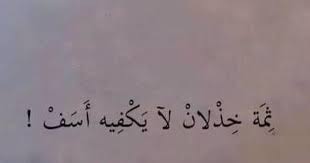 ثِمَة خِذْلانْ لآ يَكْفِيه أَسَفْ !